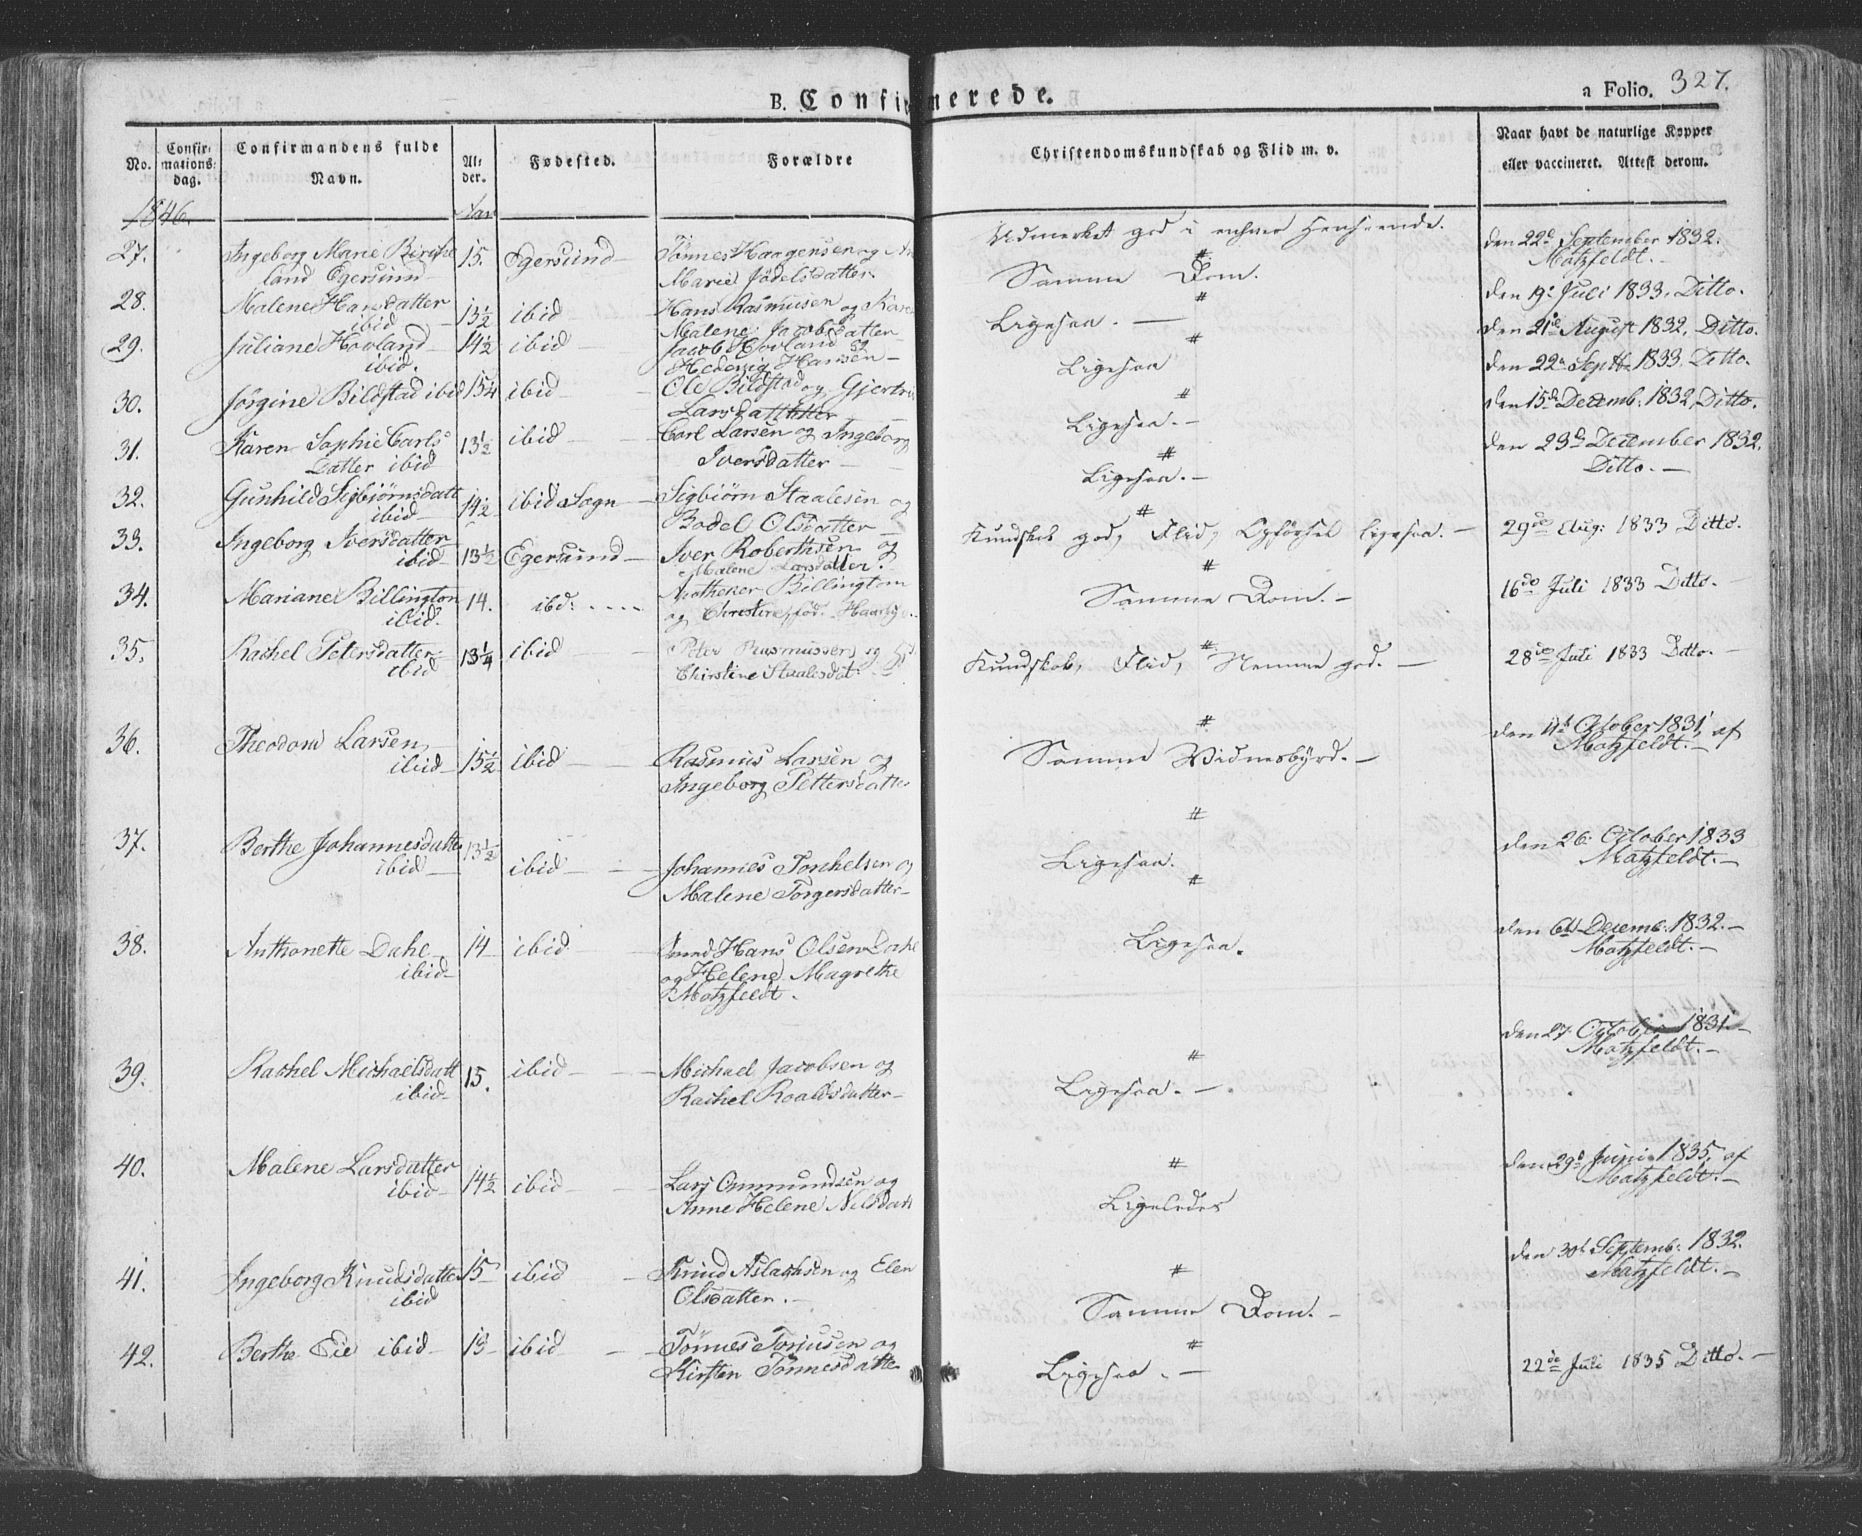 B. Confirmerede.
a Folio. 327.
No.
Confir-
mations-
dag.
Confirmandens fulde
Navn.
Al-
der.
Fødested.
Forældre
Christendomskundskab og Flid m. v.
Naar havt de naturlige Kopper
eller vaccineret. Attest derom.
1846. Aar
27. Ingeborg Marie Birche 15. Egersund Tønnes Haagensen og
land Egersund Marie Jødelsdatter.
Udmerket god i enhver Henseende.
den 22d September 1832.
Motzfeldt.
28. Malene Hansdatter 13½ ibid Hans Rasmusen og
ibid Malene Jacobsdatter
# Samme Dom.
den 19d Juli 1833. Ditto.
29. Juliane Hovland 14½ ibid Jacob Hovland og
ibid. Hedevig Hansen
# Ligesaa.
den 21de August 1832, Ditto.
30. Jørgine Bildstad ibid 15¼ ibid Ole Bildstad og Gjertru
Larsdatter
# Ligesaa
den 22d Septb. 1833. Ditto.
31. Karen Sophie Carls 13½ ibid Carl Larsen og Ingeborg
Datter ibid Iversdatter
# Ligesaa.
den 15de Decemb: 1832, Ditto.
32. Gunhild Sigbiørnsdatt 14½ ibid Sogn Sigbiørn Staalesen og
ibid Bodel Olsdatter
# Ligesaa.
den 23d December 1832.
Ditto.
33. Ingeborg Iversdatter 13½ Egersund Iver Roberthsen og
ibid Malene Larsdatter.
# Kundskab god, Flid, Opförsel ligesaa.
29de Aug: 1833 Ditto.
34. Mariane Billington 14. ibd: Apotheker Billington
ibid. og Christine, fød.
# Samme Dom.
16de Juli 1833 Ditto.
35. Rachel Petersdatter 13¼ ibid Peter Rasmussen og
ibid Christine Staalesdat.
# Kundskab, Flid, Nemme god.
28de Juli 1833 Ditto.
36. Theodora Larsen 15½ ibid Rasmus Larsen og
ibid Ingeborg Pettersdatter
# Samme Vidnesbyrd.
den 11te October 1831, af
Motzfeldt.
37. Berthe Johannesdatter 13½ ibid Johannes Torchelsen og
ibid Malene Torgersdatter
# Ligesaa.
den 26. October 1833
Motzfeldt.
38. Anthonette Dahl 14 ibid Hans Olsen Dahl
ibid og Helene Magrethe
Motzfeldt.
# Ligesaa.
den 6te Decemb: 1832.
Motzfeldt.
39. Rachel Michaelsdatt 15. ibid Michael Jacobsen og
ibid Rachel Roaldsdatter
# Ligesaa.
den 27. October 1831.
Motzfeldt.
40. Malene Larsdatter 14½ ibid Lars Ommundsen og
ibid Anne Helene Nilsdatt
# Ligeledes
den 29d Juni 1835, af
Motzfeldt.
41. Ingeborg Knudsdatter 15 ibid Knud Aslachsen og Elen
ibid Olsdatter.
# Samme Dom.
den 30te Septemb: 1832.
Motzfeldt.
42. Berthe Eie ibid 15 ibid Tønnes Torjusen og
Kirsten Tønnesdatter
# Ligesaa.
22de Juli 1835 Ditto.